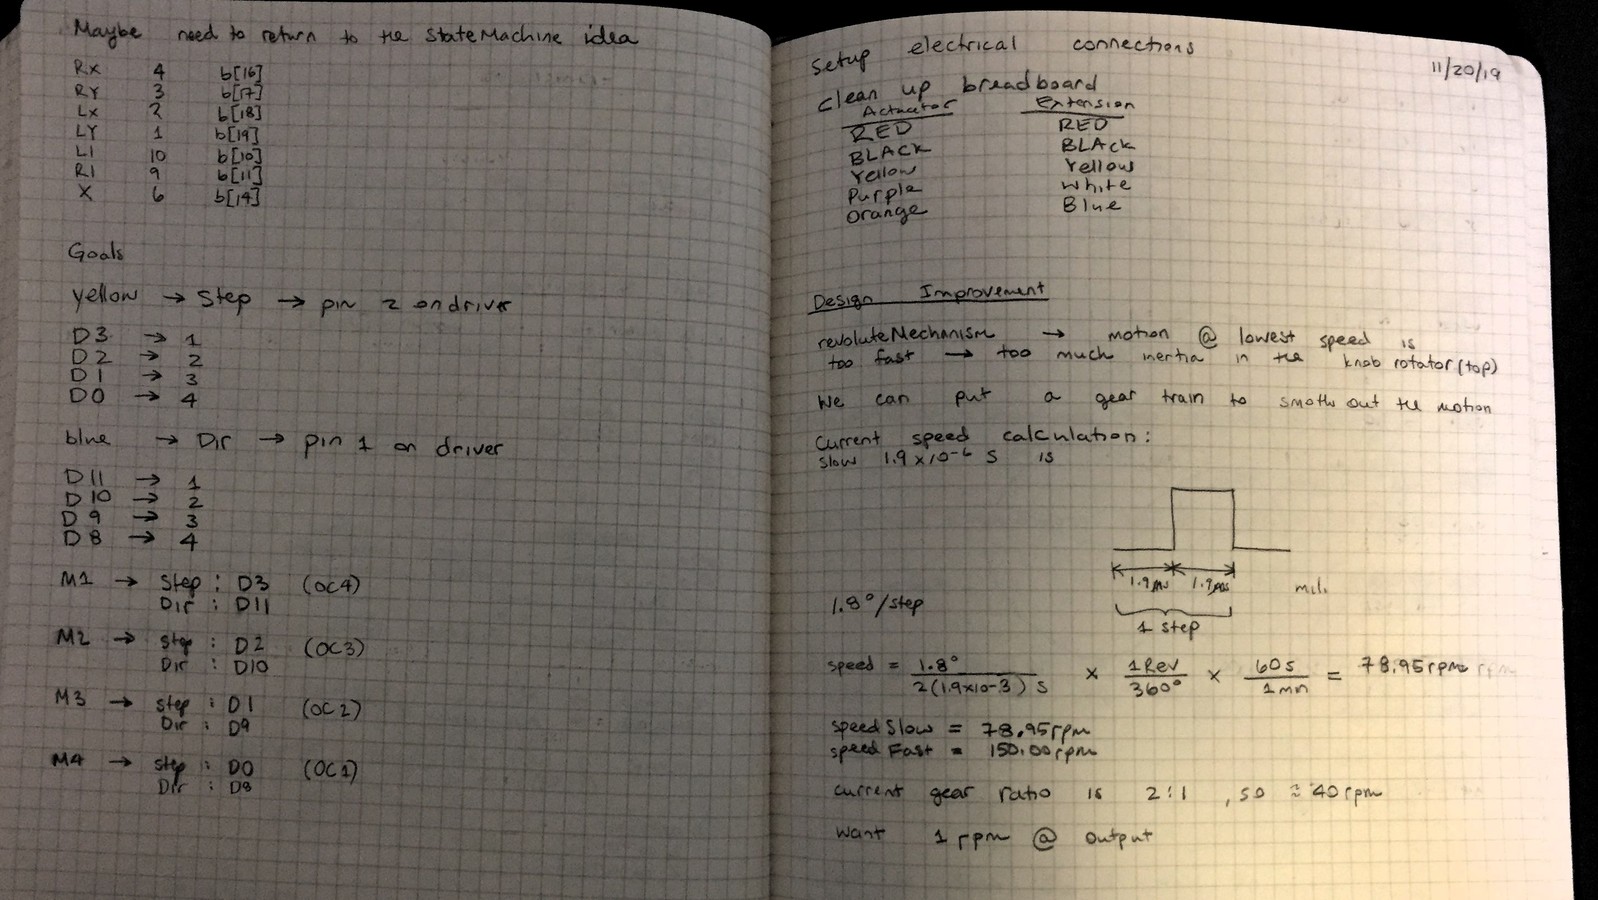 Maybe need to return to the StateMachine idea
RX 4 b[16]
RY 3 b[17]
LX 2 b[18]
LY 1 b[19]
L1 10 b[10]
R1 9 b[11]
X 6 b[14]
Goals
yellow → Step → pin 2 on driver
D3 → 1
D2 → 2
D1 → 3
D0 → 4
blue → Dir → pin 1 on driver
D11 → 1
D10 → 2
D9 → 3
D8 → 4
M1 → Step : D3 (OC4)
Dir : D11
M2 → Step : D2 (OC3)
Dir : D10
M3 → Step : D1 (OC2)
Dir : D9
M4 → Step : D0 (OC1)
Dir : D8
11/20/19
Setup electrical connections
Clean up breadboard
Actuator Extension
RED RED
BLACK BLACK
Yellow Yellow
Purple White
Orange Blue
Design Improvement
revoluteMechanism → motion @ lowest speed is
too fast → too much inertia in the knob rotator (top)
We can put a gear train to smoth out the motion
Current speed calculation:
Slow 1.9 x 10-6 s is
1.9 ms 1.9 ms mili
1 step
1.8°/step
speed = 1.8° / 2(1.9x10-3) s × 1Rev / 360° × 60s / 1min = 78.95rpm
speedSlow = 78.95rpm
speed Fast = 150.00rpm
current gear ratio is 2:1 , so ≈ 40rpm
Want 1 rpm @ output